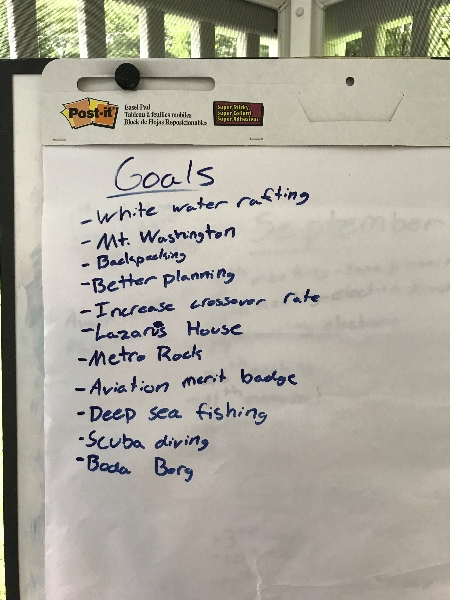 Post-it
Easel Pad
Tableau à feuilles mobiles
Block de Hojas Reposicionables
Super Sticky
Super Collant
Super Adhesivo
Goals
- White water rafting
- Mt. Washington
- Backpacking
- Better planning
- Increase crossover rate
- Lazarus House
- Metro Rock
- Aviation merit badge
- Deep sea fishing
- Scuba diving
- Boda Borg
September